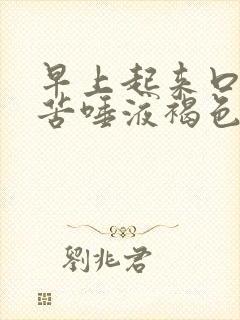 早上起来口
苦唾液褐色
劉兆君